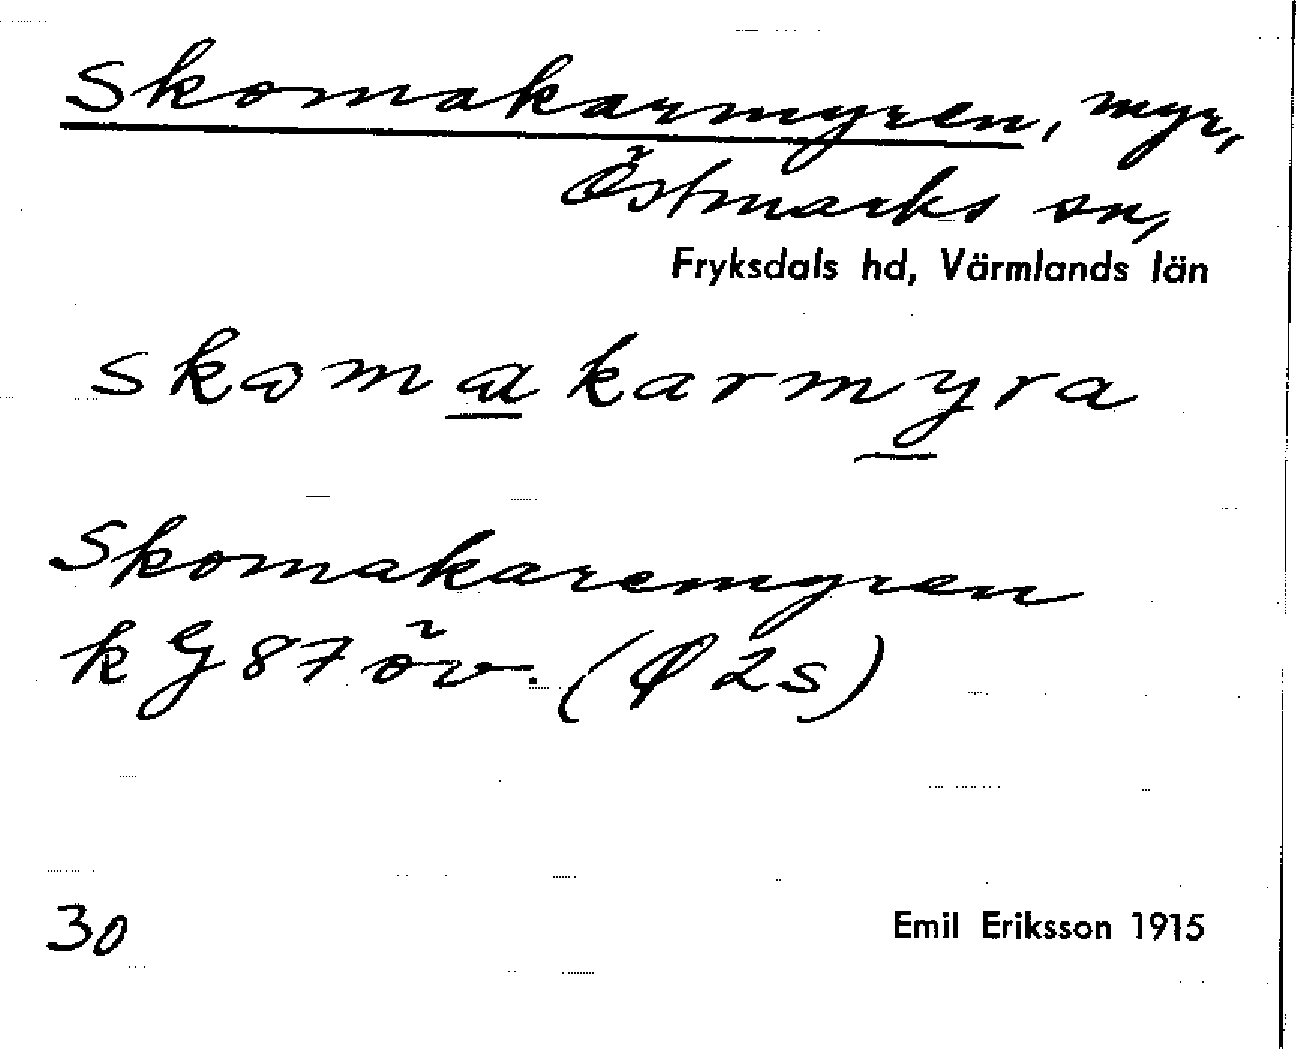 Skomakarmyren, myr,
Östmarks sn,
Fryksdals hd, Värmlands län
skomakarmyra
Skomakaremyren
k G 87 öv. (Ø 2s)
30
Emil Eriksson 1915